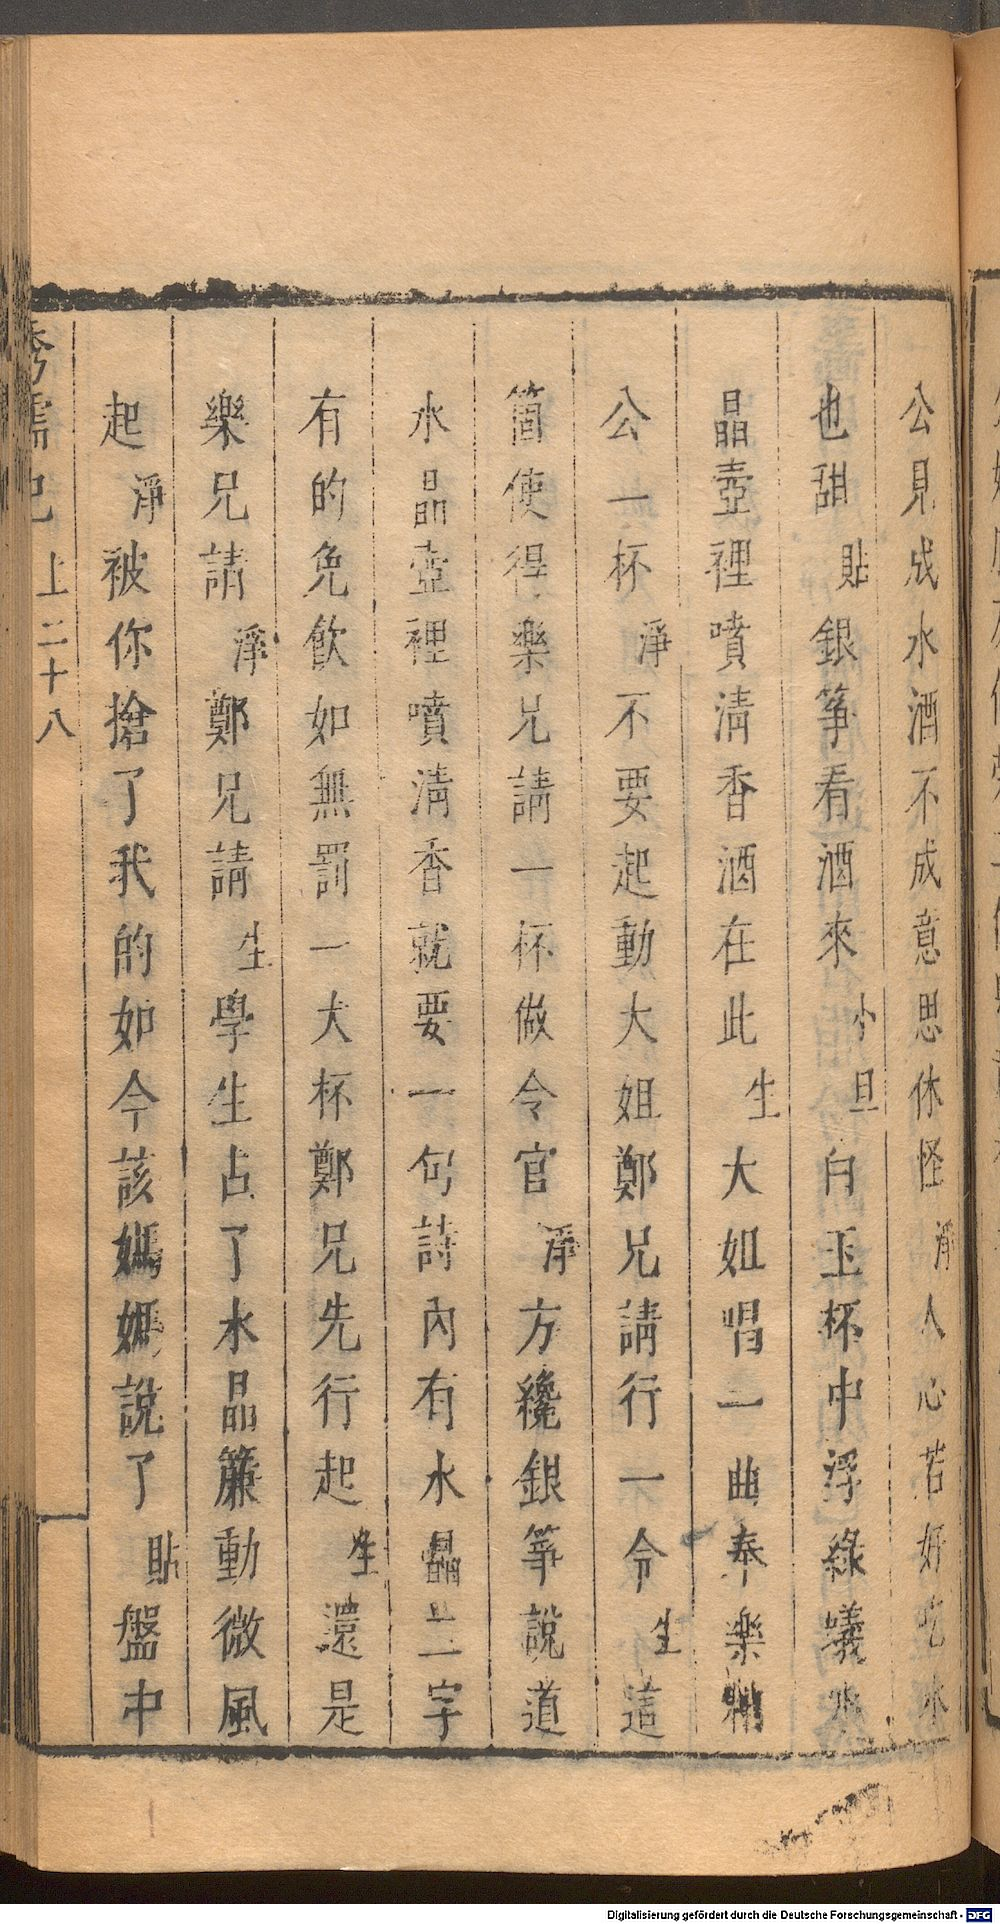 公見成水酒不成意思休怪淨人心若好吃水
也甜貼銀筝看酒來小旦白玉杯中浮綠蟻水
晶壺裡噴清香酒在此生大姐唱一曲奉樂相
公一杯淨不要起動大姐鄭兄請行一令生這
箇使得樂兄請一杯做令官淨方纔銀筝說道
水晶壺裡噴清香就要一句詩內有水晶二字
有的免飲如無罰一大杯鄭兄先行起生還是
樂兄請淨鄭兄請生學生占了水晶簾動微風
起淨被你搶了我的如今該媽媽說了貼盤中
繡襦記 上二十八
Digitalisierung gefördert durch die Deutsche Forschungsgemeinschaft - DFG